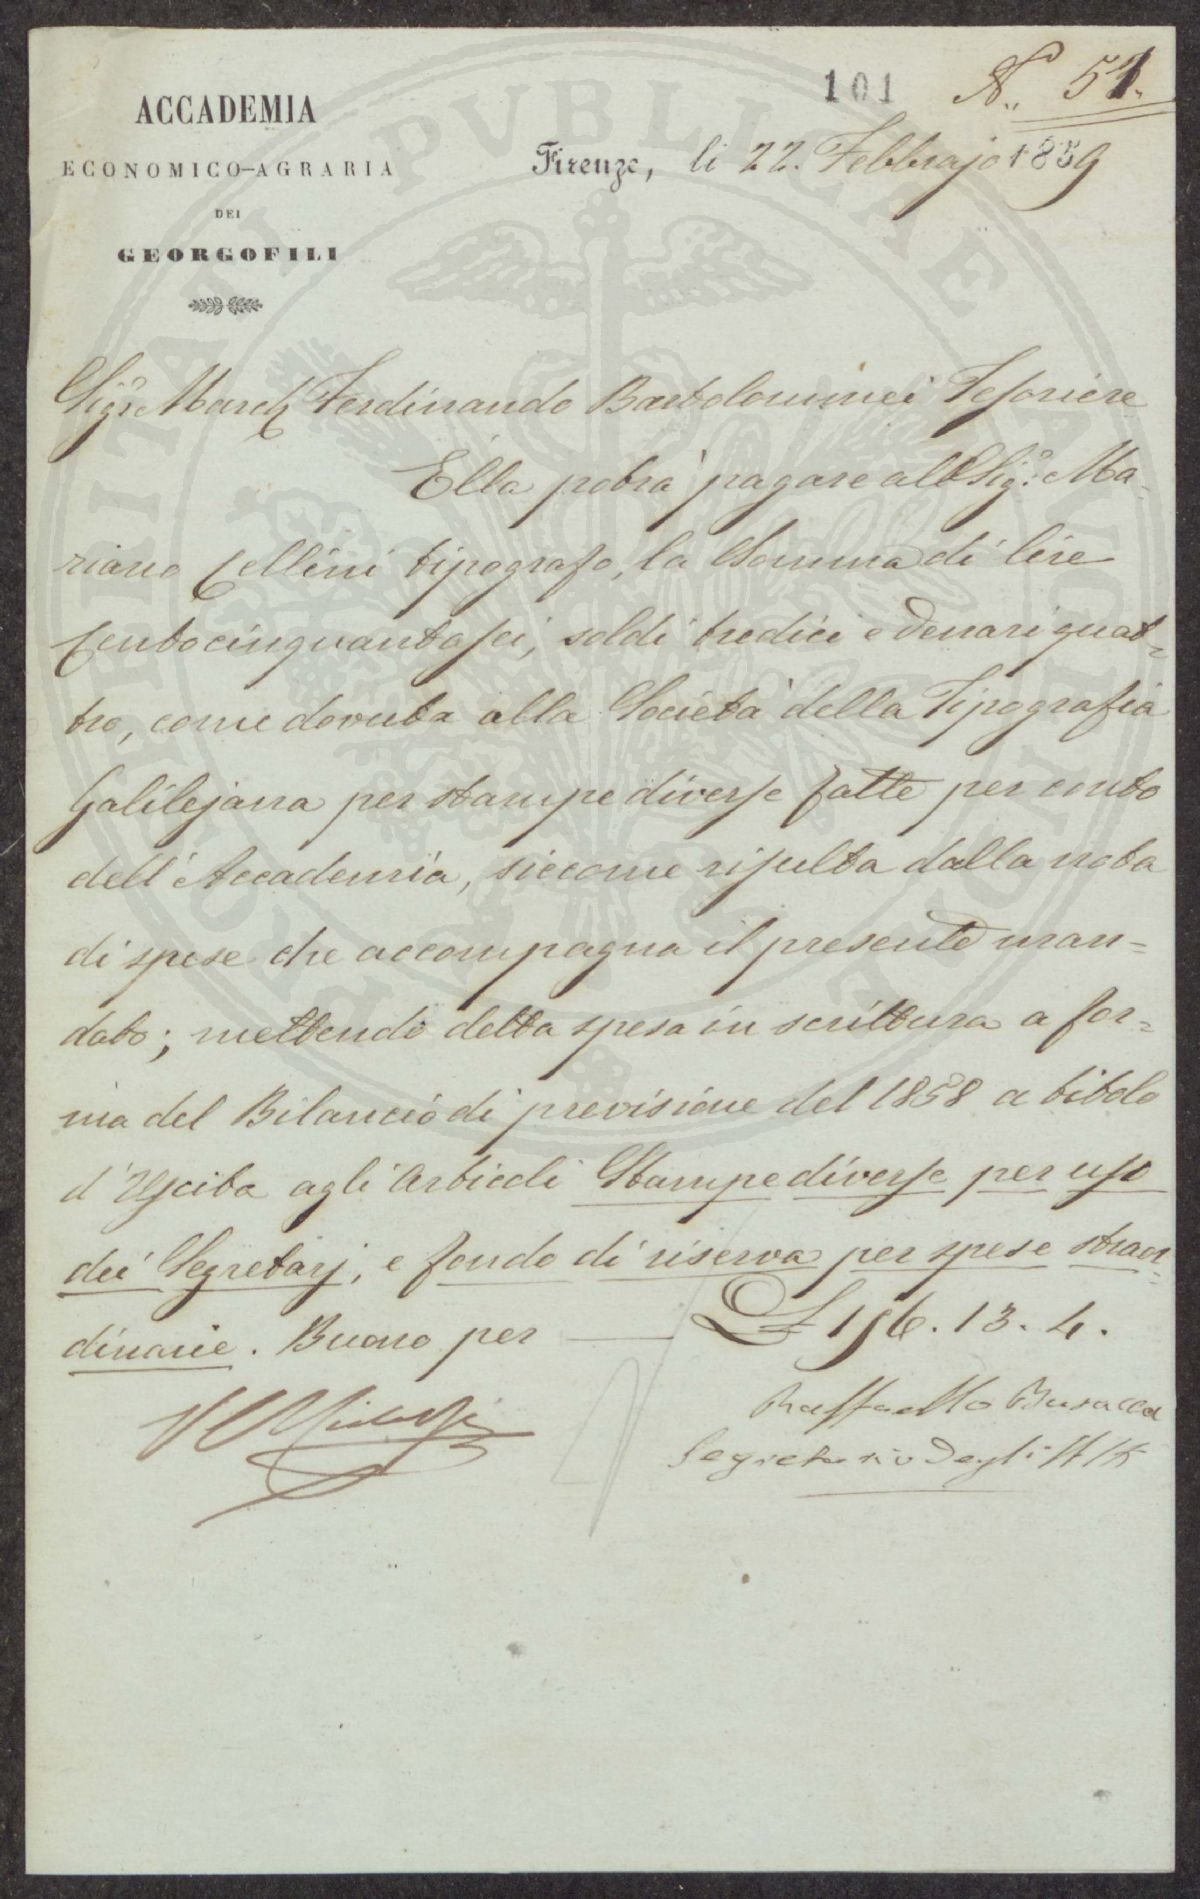 101
N.. 51.
ACCADEMIA
ECONOMICO-AGRARIA
DEI
GEORGOFILI
Firenze, li 22. Febbrajo 1859
Sigr. March Ferdinando Bartolommei Tesoriere
Ella potrà pagare all Sigr. Ma-
riano Cellini tipografo, la Somma di lire
Centocinquantasei, soldi tredici e denari quat=
tro, come dovuta alla Società della Tipografia
Galilejana per stampe diverse fatte per conto
dell'Accademia, siccome risulta dalla nota
di spese che accompagna il presente man=
dato; mettendo detta spesa in scrittura a for=
ma del Bilancio di previsione del 1858 a titolo
d'Uscita agli Articoli Stampe diverse per uso
dei Segretarj, e fondo di riserva per spese straor=
dinarie. Buono per — £ 156. 13. 4.
Raffaello Busacca
Segretario degli Atti
PUBLICAE